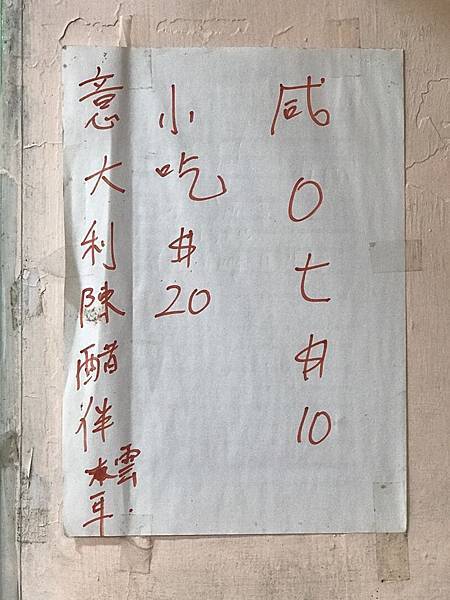 咸0七$10
小吃$20
意大利陳醋伴雲耳.